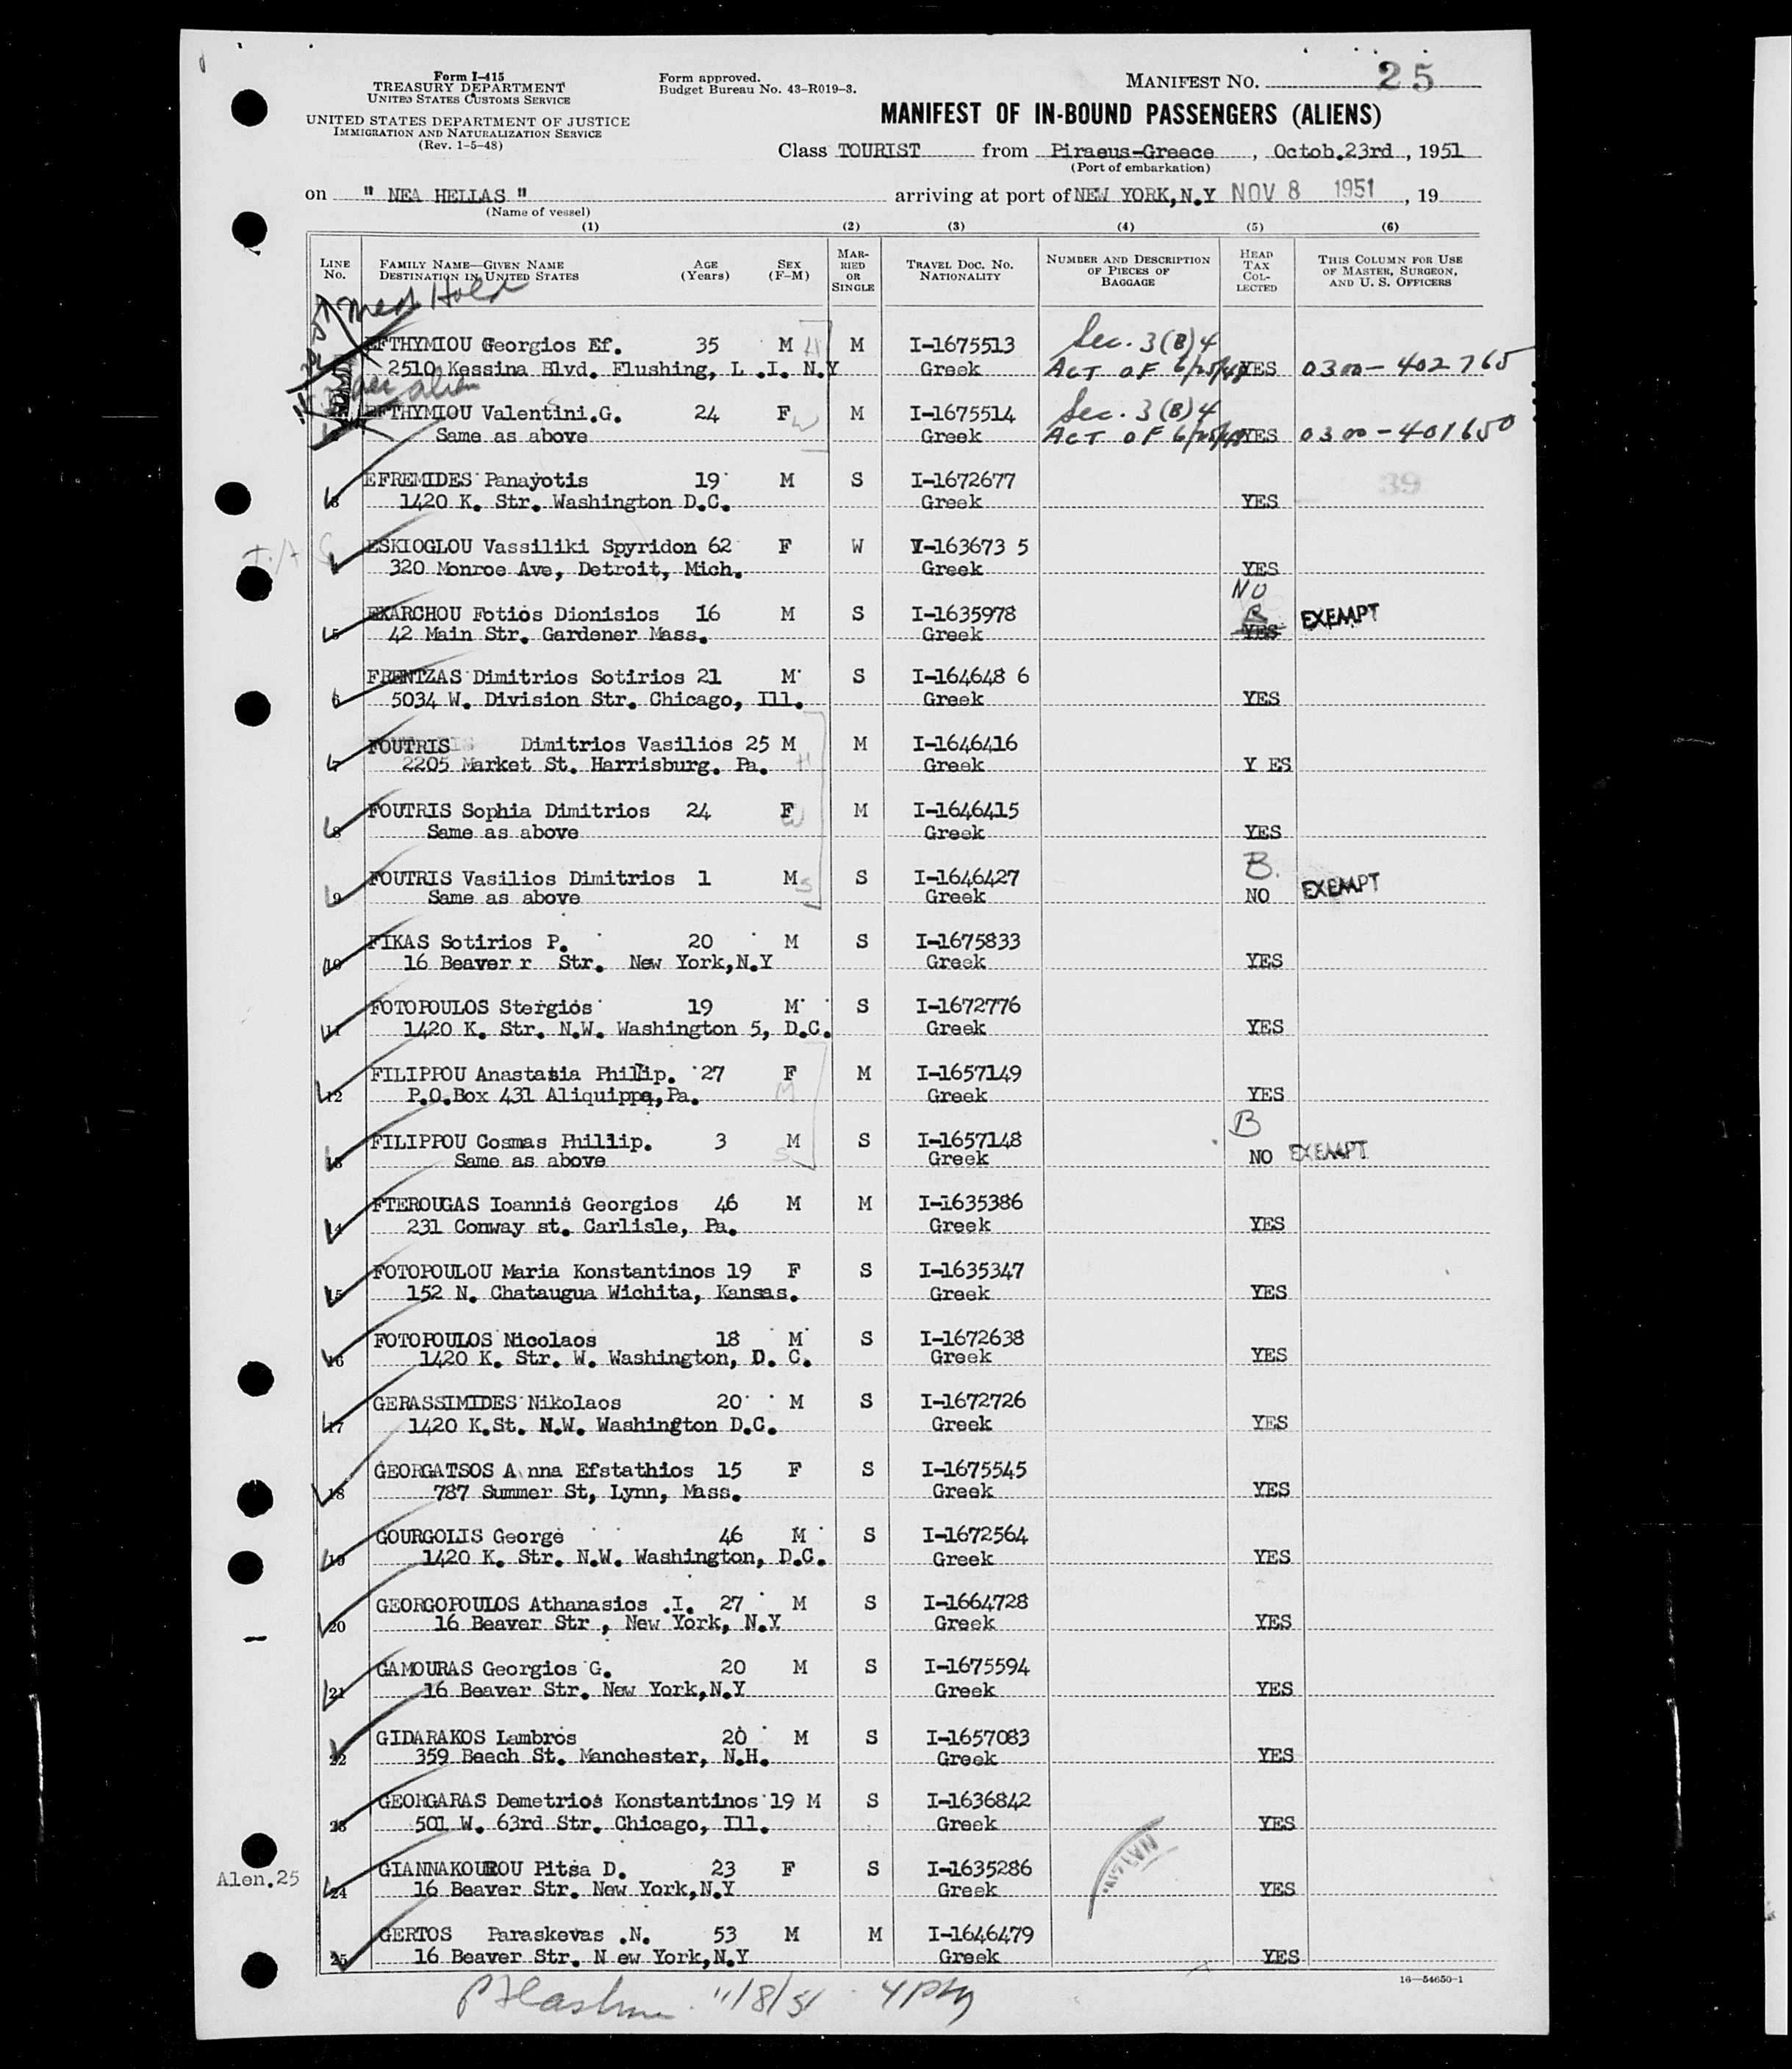 Form I-415
TREASURY DEPARTMENT
UNITED STATES CUSTOMS SERVICE
UNITED STATES DEPARTMENT OF JUSTICE
IMMIGRATION AND NATURALIZATION SERVICE
(Rev. 1-5-48)
Form approved.
Budget Bureau No. 43-R019-3.
MANIFEST NO. 25
MANIFEST OF IN-BOUND PASSENGERS (ALIENS)
Class TOURIST from Piraeus-Greece, Octob.23rd, 1951
(Port of embarkation)
on " NEA HELLAS " arriving at port of NEW YORK,N.Y NOV 8 1951, 19
(Name of vessel)
(1) (2) (3) (4) (5) (6)
LINE NO. FAMILY NAME—GIVEN NAME DESTINATION IN UNITED STATES AGE (Years) SEX (F-M) MARRIED OR SINGLE TRAVEL DOC. NO. NATIONALITY NUMBER AND DESCRIPTION OF PIECES OF BAGGAGE HEAD TAX COLLECTED THIS COLUMN FOR USE OF MASTER, SURGEON, AND U. S. OFFICERS
Med Hold
EFTHYMIOU Georgios Ef. 35 M H M I-1675513 Sec. 3(B)4
2510 Kessina Blvd. Flushing, L .I. N.Y Greek ACT OF 6/25/48 YES 0300-402765
EFTHYMIOU Valentini.G. 24 F W M I-1675514 Sec. 3(B)4
Same as above Greek ACT OF 6/25/48 YES 0300-401650
EFREMIDES Panayotis 19 M S I-1672677 39
3 1420 K. Str. Washington D.C. Greek YES
ESKIOGLOU Vassiliki Spyridon 62 F W V-163673 5
4 320 Monroe Ave, Detroit, Mich. Greek YES
NO
EKARCHOU Fotios Dionisios 16 M S I-1635978 B EXEMPT
5 42 Main Str. Gardener Mass. Greek YES
FRENTZAS Dimitrios Sotirios 21 M S I-164648 6
6 5034 W. Division Str. Chicago, Ill. Greek YES
FOUTRIS Dimitrios Vasilios 25 M M I-1646416
7 2205 Market St. Harrisburg. Pa. H Greek Y ES
FOUTRIS Sophia Dimitrios 24 F W M I-1646415
8 Same as above Greek YES
B.
FOUTRIS Vasilios Dimitrios 1 M S S I-1646427 EXEMPT
9 Same as above Greek NO
FIKAS Sotirios P. 20 M S I-1675833
10 16 Beaver r Str. New York,N.Y Greek YES
FOTOPOULOS Stergios 19 M S I-1672776
11 1420 K. Str. N.W. Washington 5, D.C. Greek YES
FILIPPOU Anastasia Phillip. 27 F M I-1657149
12 P.O.Box 431 Aliquippa,Pa. M Greek YES
B
FILIPPOU Cosmas Phillip. 3 M S I-1657148
13 Same as above S Greek NO EXEMPT
FTEROUGAS Ioannis Georgios 46 M M I-1635386
14 231 Conway st. Carlisle, Pa. Greek YES
FOTOPOULOU Maria Konstantinos 19 F S I-1635347
15 152 N. Chataugua Wichita, Kansas. Greek YES
FOTOPOULOS Nicolaos 18 M S I-1672638
16 1420 K. Str. W. Washington, D. C. Greek YES
GERASSIMIDES Nikolaos 20 M S I-1672726
17 1420 K.St. N.W. Washington D.C. Greek YES
GEORGATSOS A nna Efstathios 15 F S I-1675545
18 787 Summer St, Lynn, Mass. Greek YES
GOURGOLIS George 46 M S I-1672564
19 1420 K. Str. N.W. Washington, D.C. Greek YES
GEORGOPOULOS Athanasios .I. 27 M S I-1664728
20 16 Beaver Str , New York, N.Y Greek YES
GAMOURAS Georgios G. 20 M S I-1675594
21 16 Beaver Str. New York,N.Y Greek YES
GIDARAKOS Lambros 20 M S I-1657083
22 359 Beech St. Manchester, N.H. Greek YES
GEORGARAS Demetrios Konstantinos 19 M S I-1636842
23 501 W. 63rd Str. Chicago, Ill. Greek YES
Alen.25 GIANNAKOUROU Pitsa D. 23 F S I-1635286
24 16 Beaver Str. New York,N.Y Greek YES
GERTOS Paraskevas .N. 53 M M I-1646479
25 16 Beaver Str. N ew York,N.Y Greek YES
16—54650-1
11/8/51